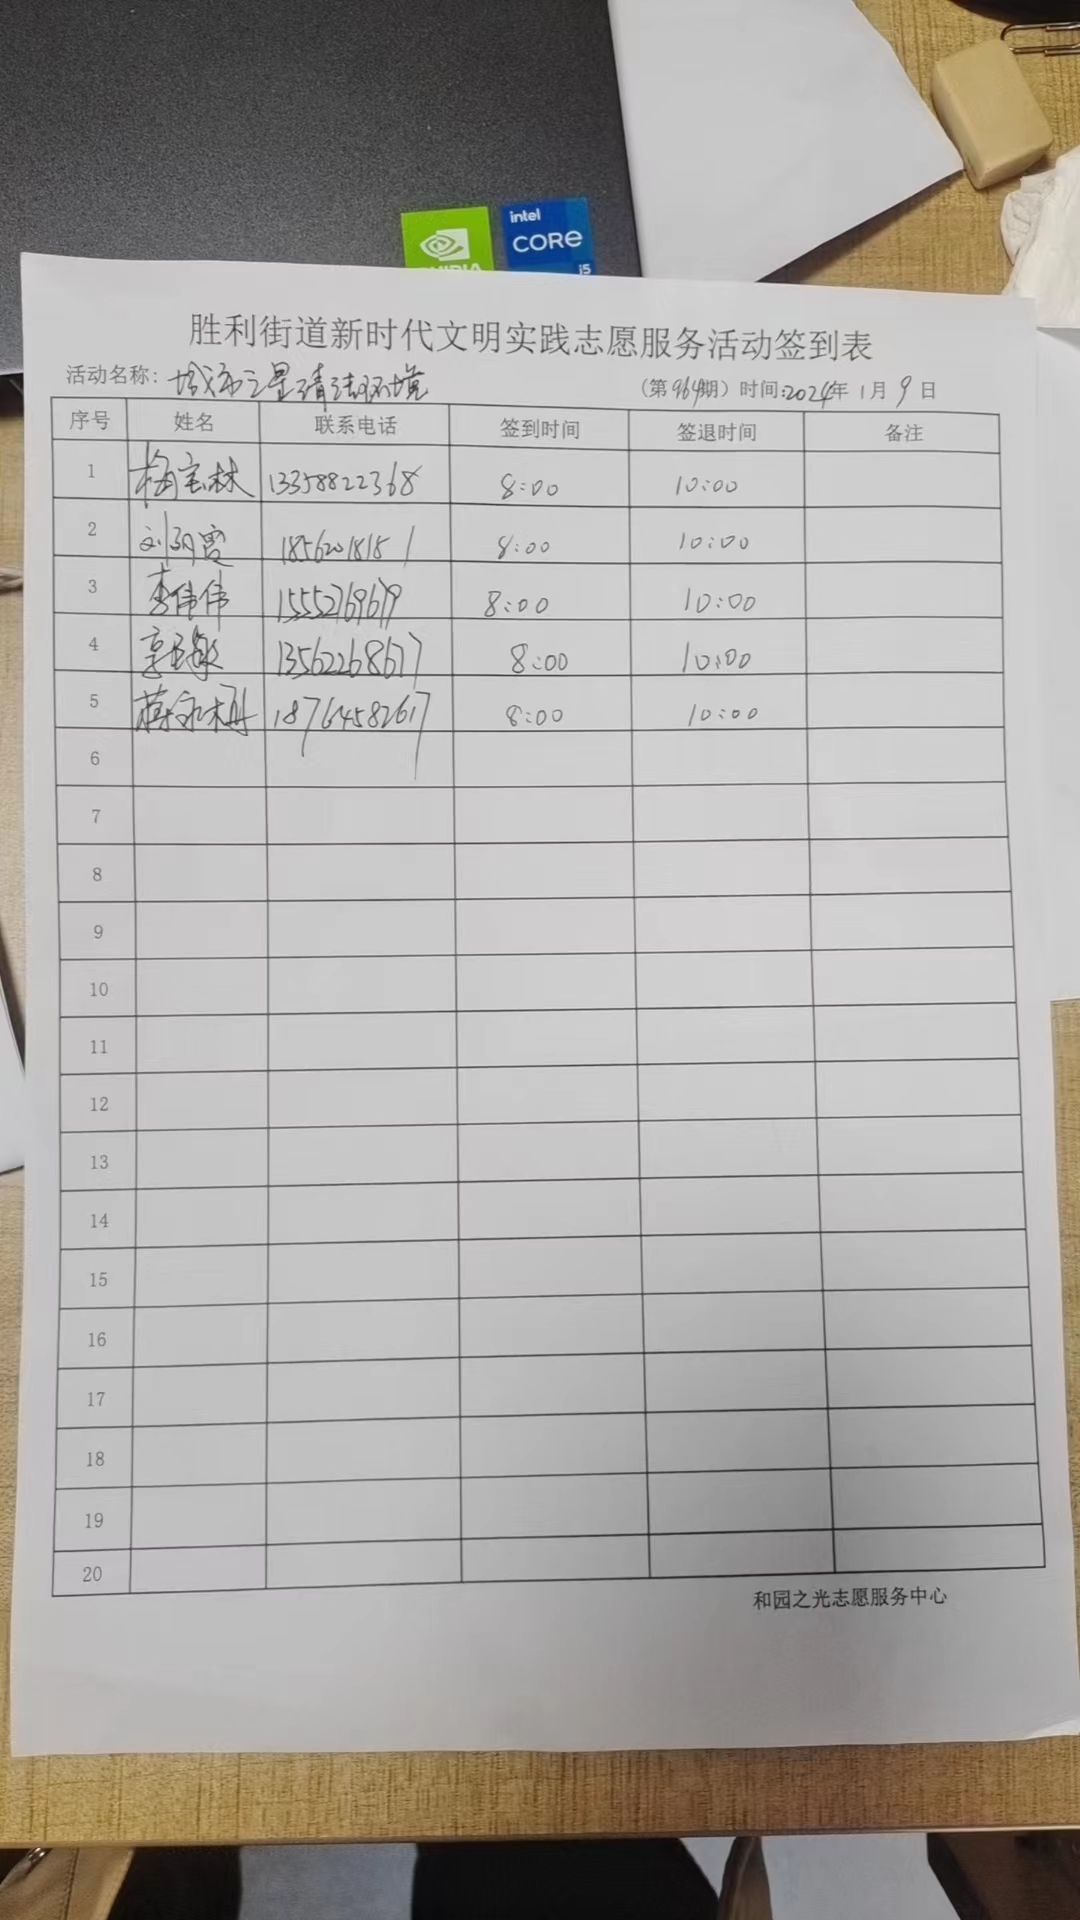 intel
CORE
i5
胜利街道新时代文明实践志愿服务活动签到表
活动名称：城市之星清洁环境 （第964期）时间:2024年 1月 9日
序号 姓名 联系电话 签到时间 签退时间 备注
1 梅宝林 13358822368 8:00 10:00
2 刘 18562018151 8:00 10:00
3 李伟伟 15552769679 8:00 10:00
4 13562268677 8:00 10:00
5 18764582617 8:00 10:00
6
7
8
9
10
11
12
13
14
15
16
17
18
19
20
和园之光志愿服务中心